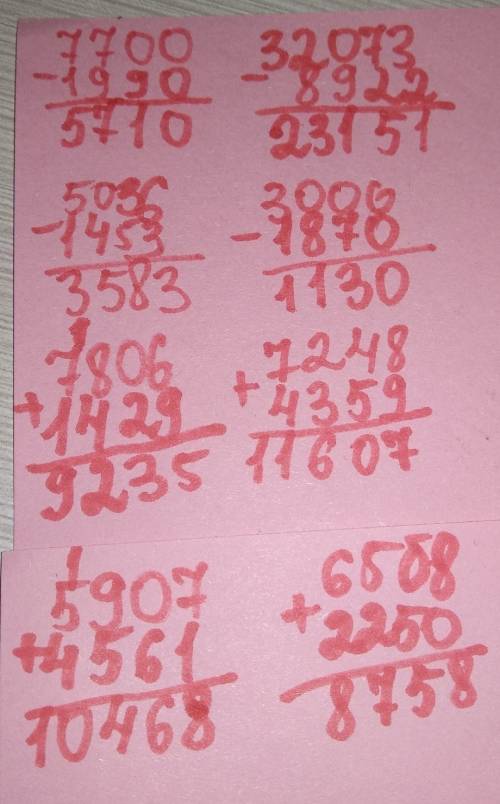 7700
-1990
5710
32073
- 8922
23151
5036
-1453
3583
3000
-1870
1130
1
7806
+1429
9235
7248
+4359
11607
1
5907
+4561
10468
6508
+2250
8758